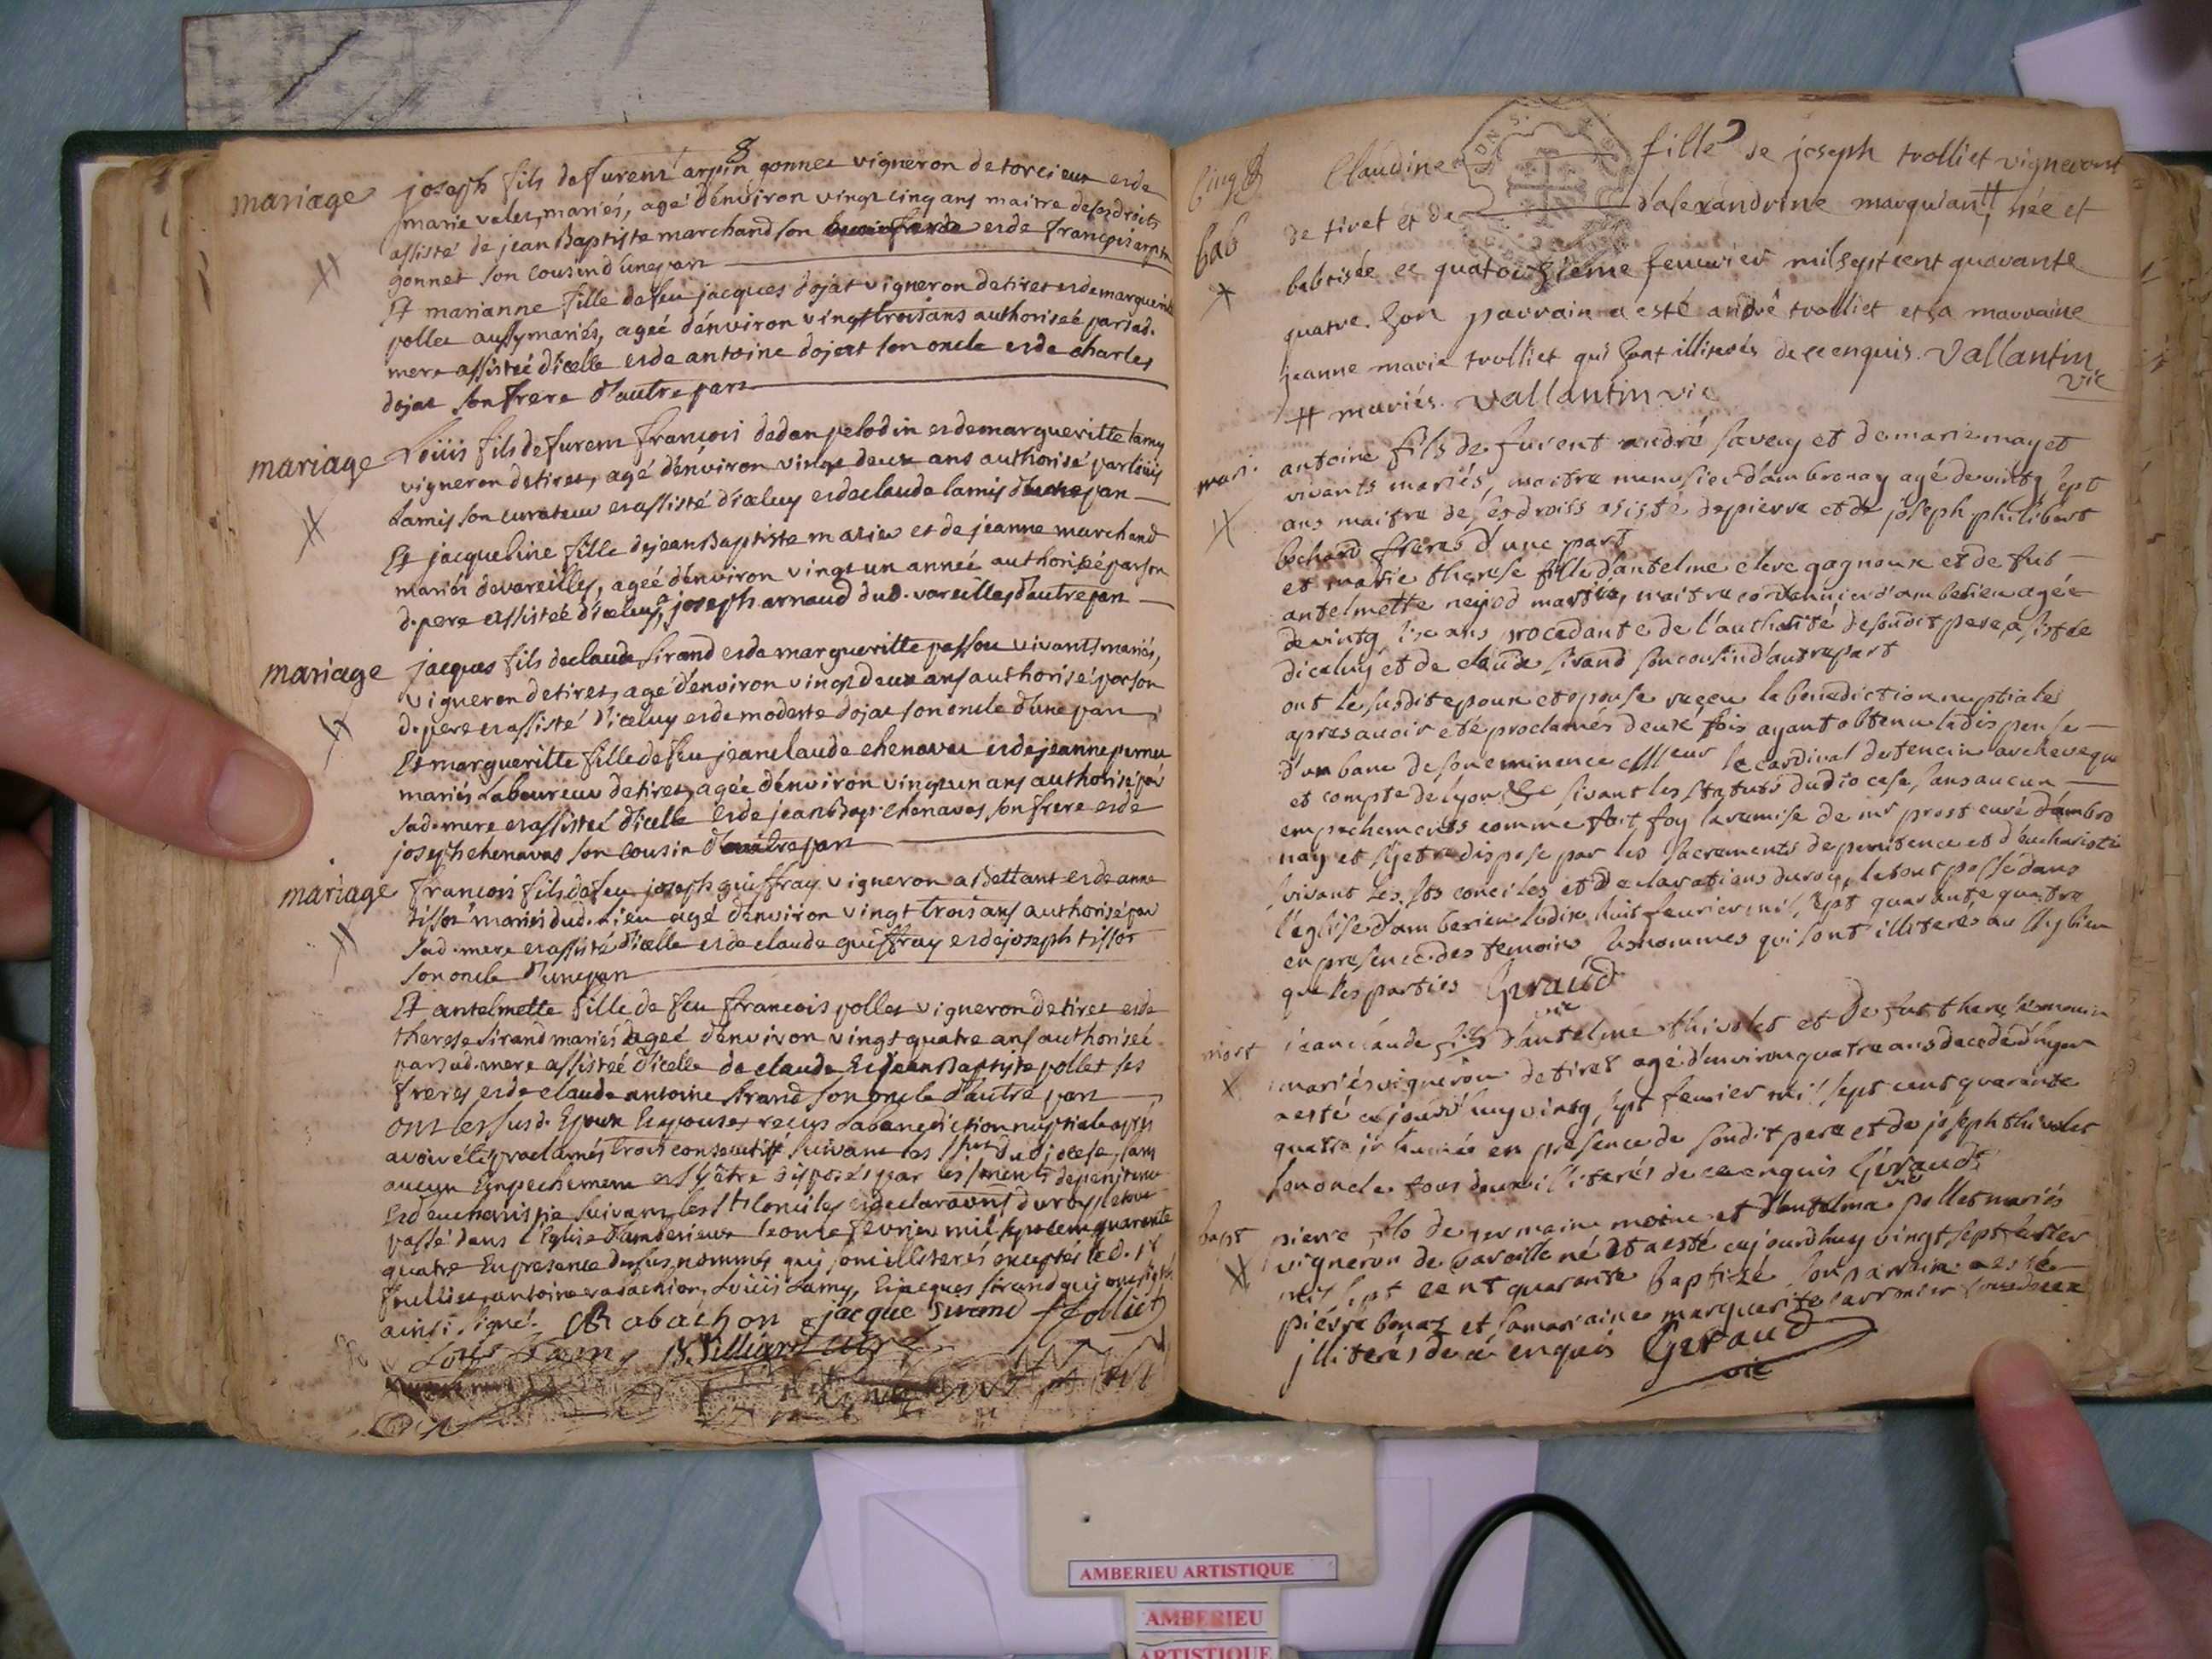 8
mariage
joseph fils de furent arpin gonnet vigneron de torcieux et de
marie valet, mariés, agé d'énviron vingt cinq ans maitre de ses droits
assisté de jean Baptiste marchand son et de françois arpin
gonnet son cousin d'une part
Et marianne fille de feu jacques dojat vigneron de tiret et de marguerite
pollet aussy mariés, ageé d'énviron vingt trois ans authoriseé par sad.
mere assisteé d'icelle et de antoine dojat son oncle et de charles
dojat son frere d'autre part
mariage
Loüis fils de furent françois dedan pelodin et de margueritte lamy
vigneron de tiret, agé d'énviron vingt deux ans authorisé par loüis
Lamy son curateur et assisté d'iceluy et de claude lamis d'une part
Et jacqueline fille de jean Baptiste et de jeanne marchand
mariés de vareilles, ageé d'énviron vingt un anneé authoriseé par son
d. pere assisteé d'iceluy, joseph arnaud dud. vareilles d'autre part
mariage
jacques fils de claude sirand et de margueritte passou vivants mariés,
vigneron de tiret, agé d'énviron vingt deux ans authorisé par son
d. pere et assisté d'iceluy et de modeste dojat son oncle d'une part
Et margueritte fille de feu jean claude chenavas et de jeanne
mariés Laboureur de tiret, ageé d'énviron vingt un ans authorisé par
sad. mere et assisteé d'icelle et de jean Bap. chenavas son frere et de
joseph chenavas son cousin d'autre part
mariage
francois fils de feu joseph guiffray vigneron a Bettant et de anne
tissot mariés dud. Lieu agé d'énviron vingt trois ans authorisé par
sad. mere et assisté d'icelle et de claude guiffray et de joseph tissot
son oncle d'une part
Et antelmette fille de feu francois pollet vigneron de tiret et de
therese sirand mariés ageé d'énviron vingt quatre ans authoriseé
par sad. mere assisteé d'icelle de claude Et jean Baptiste pollet ses
freres et de claude antoine sirand son oncle d'autre part
ont les susd. Epoux Et epouses recus La benediction nuptiale aprés
avoir été proclamés trois consecutifs suivant les du diocese, sans
aucun Empechement et s'y être disposés par les s.ments de penitence
Et d'eucharistie suivant les s.ts Conciles et declarations du roy, le tout
passé dans L'Eglise d'amberieux le onze fevrier mil sept cent quarante
quatre En presence des susnommés qui sont illiterés exceptés led. sr
antoine rabachon, Loüis Lamy, Et jacques sirand qui ont signé
ainsi signé. Rabachon jacque Sirand
Louis Lamy
Cinq
bab
Claudine fille de joseph trolliet vigneront
de tiret et de d'alexandrine marquiant # née et
babtisée ce quatorzieme feuvrier mil sept cent quarante
quatre. Son parrain a esté andré trolliet et sa marraine
jeanne marie trolliet qui sont illiterés de ce enquis. Vallantin
vic
# mariés. Vallantin vic
mari.
antoine fils de furent andré savey et de marie mayet
vivants mariés, maitre menusier d'ambronay agé de vintg sept
ans maitre de ses droits asisté de pierre et de joseph philibert
bochard freres d'une part
et marie therese fille d'antelme cleve gagnoux et de fut
antelmette neyrod mariés, maitre cordannier d'amberieu agée
de vintg ans procedante de l'authorité de son dit pere asistée
d'iceluy et de claude sirand son cousin d'autre part
ont les susdits epoux et epouse reçeu la benediction nuptiale
apres avoir eté proclamés deux fois ayant obtenu la dispense
d'un banc de son eminence Monseigneur le cardinal de tencin archeveque
et compte de lyon sivant les statuts du diocese sans aucun
empechements comme fait foy la remise de mr prost curé d'ambro
nay et s'y etre dispose par les sacrements de penitence et d'eucharisti
suivant les sts conciles et declarations du roy, le tout passé dans
l'eglise d'amberieu le dix huit feurier mil sept quarante quatre
en presence des temoins susnommes qui sont illiteres aussy bien
que les parties Geraud
vic
mort
jean claude fils d'antelme thivolet et de fut therese
mariés vigneron de tiret agé d'environ quatre ans decedé d'hyer
a esté ce jourd'huy vintg sept feurier mil sept cent quarante
quatre inhumé en presence de son dit pere et de joseph thivolet
son oncle tous deux illiterés de ce enquis Geraud
vic
bapt
pierre fils de germaine moine et d'antelma pollet mariés
vigneron de vareille né et a esté aujourdhuy vingt sept
mil sept cent quarante baptizé son parrain a esté
pierre bonaz et sa marraine marguerite tous deux
jlliterés de ce enquis Geraud
vic
AMBERIEU ARTISTIQUE
AMBERIEU
ARTISTIQUE